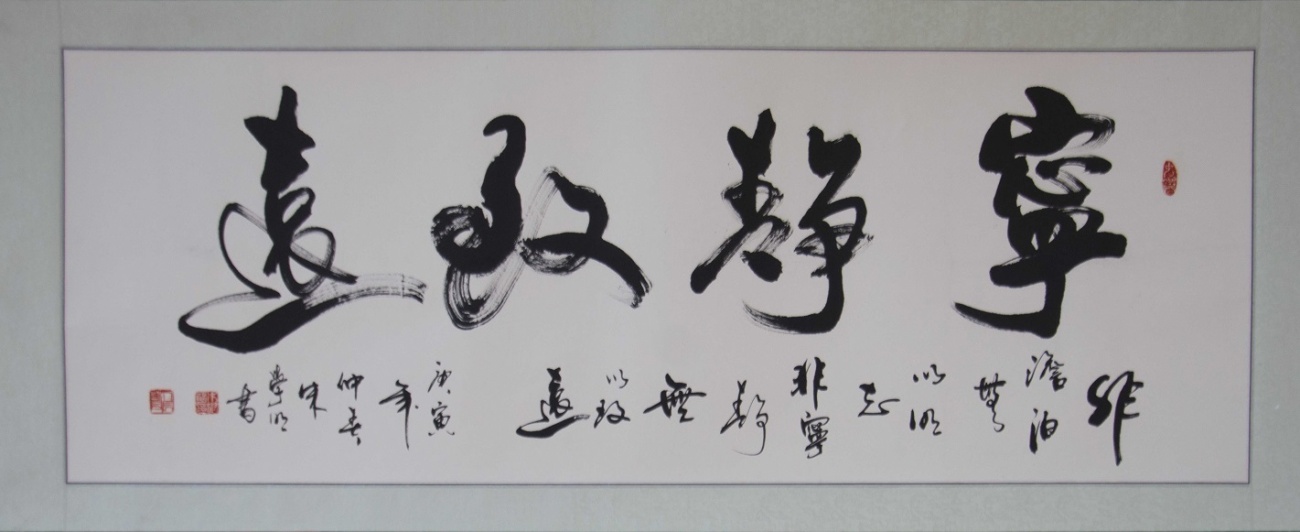 寧靜致遠
非澹泊無以明志非寧靜無以致遠
庚寅年仲春朱學明書